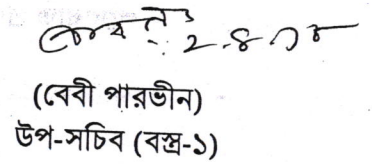 ২.৪.১৮
(বেবী পারভীন)
উপ-সচিব (বস্ত্র-১)